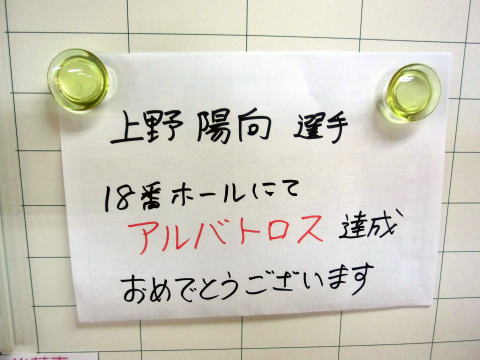 上野 陽向 選手
18番ホールにて
アルバトロス 達成
おめでとうございます